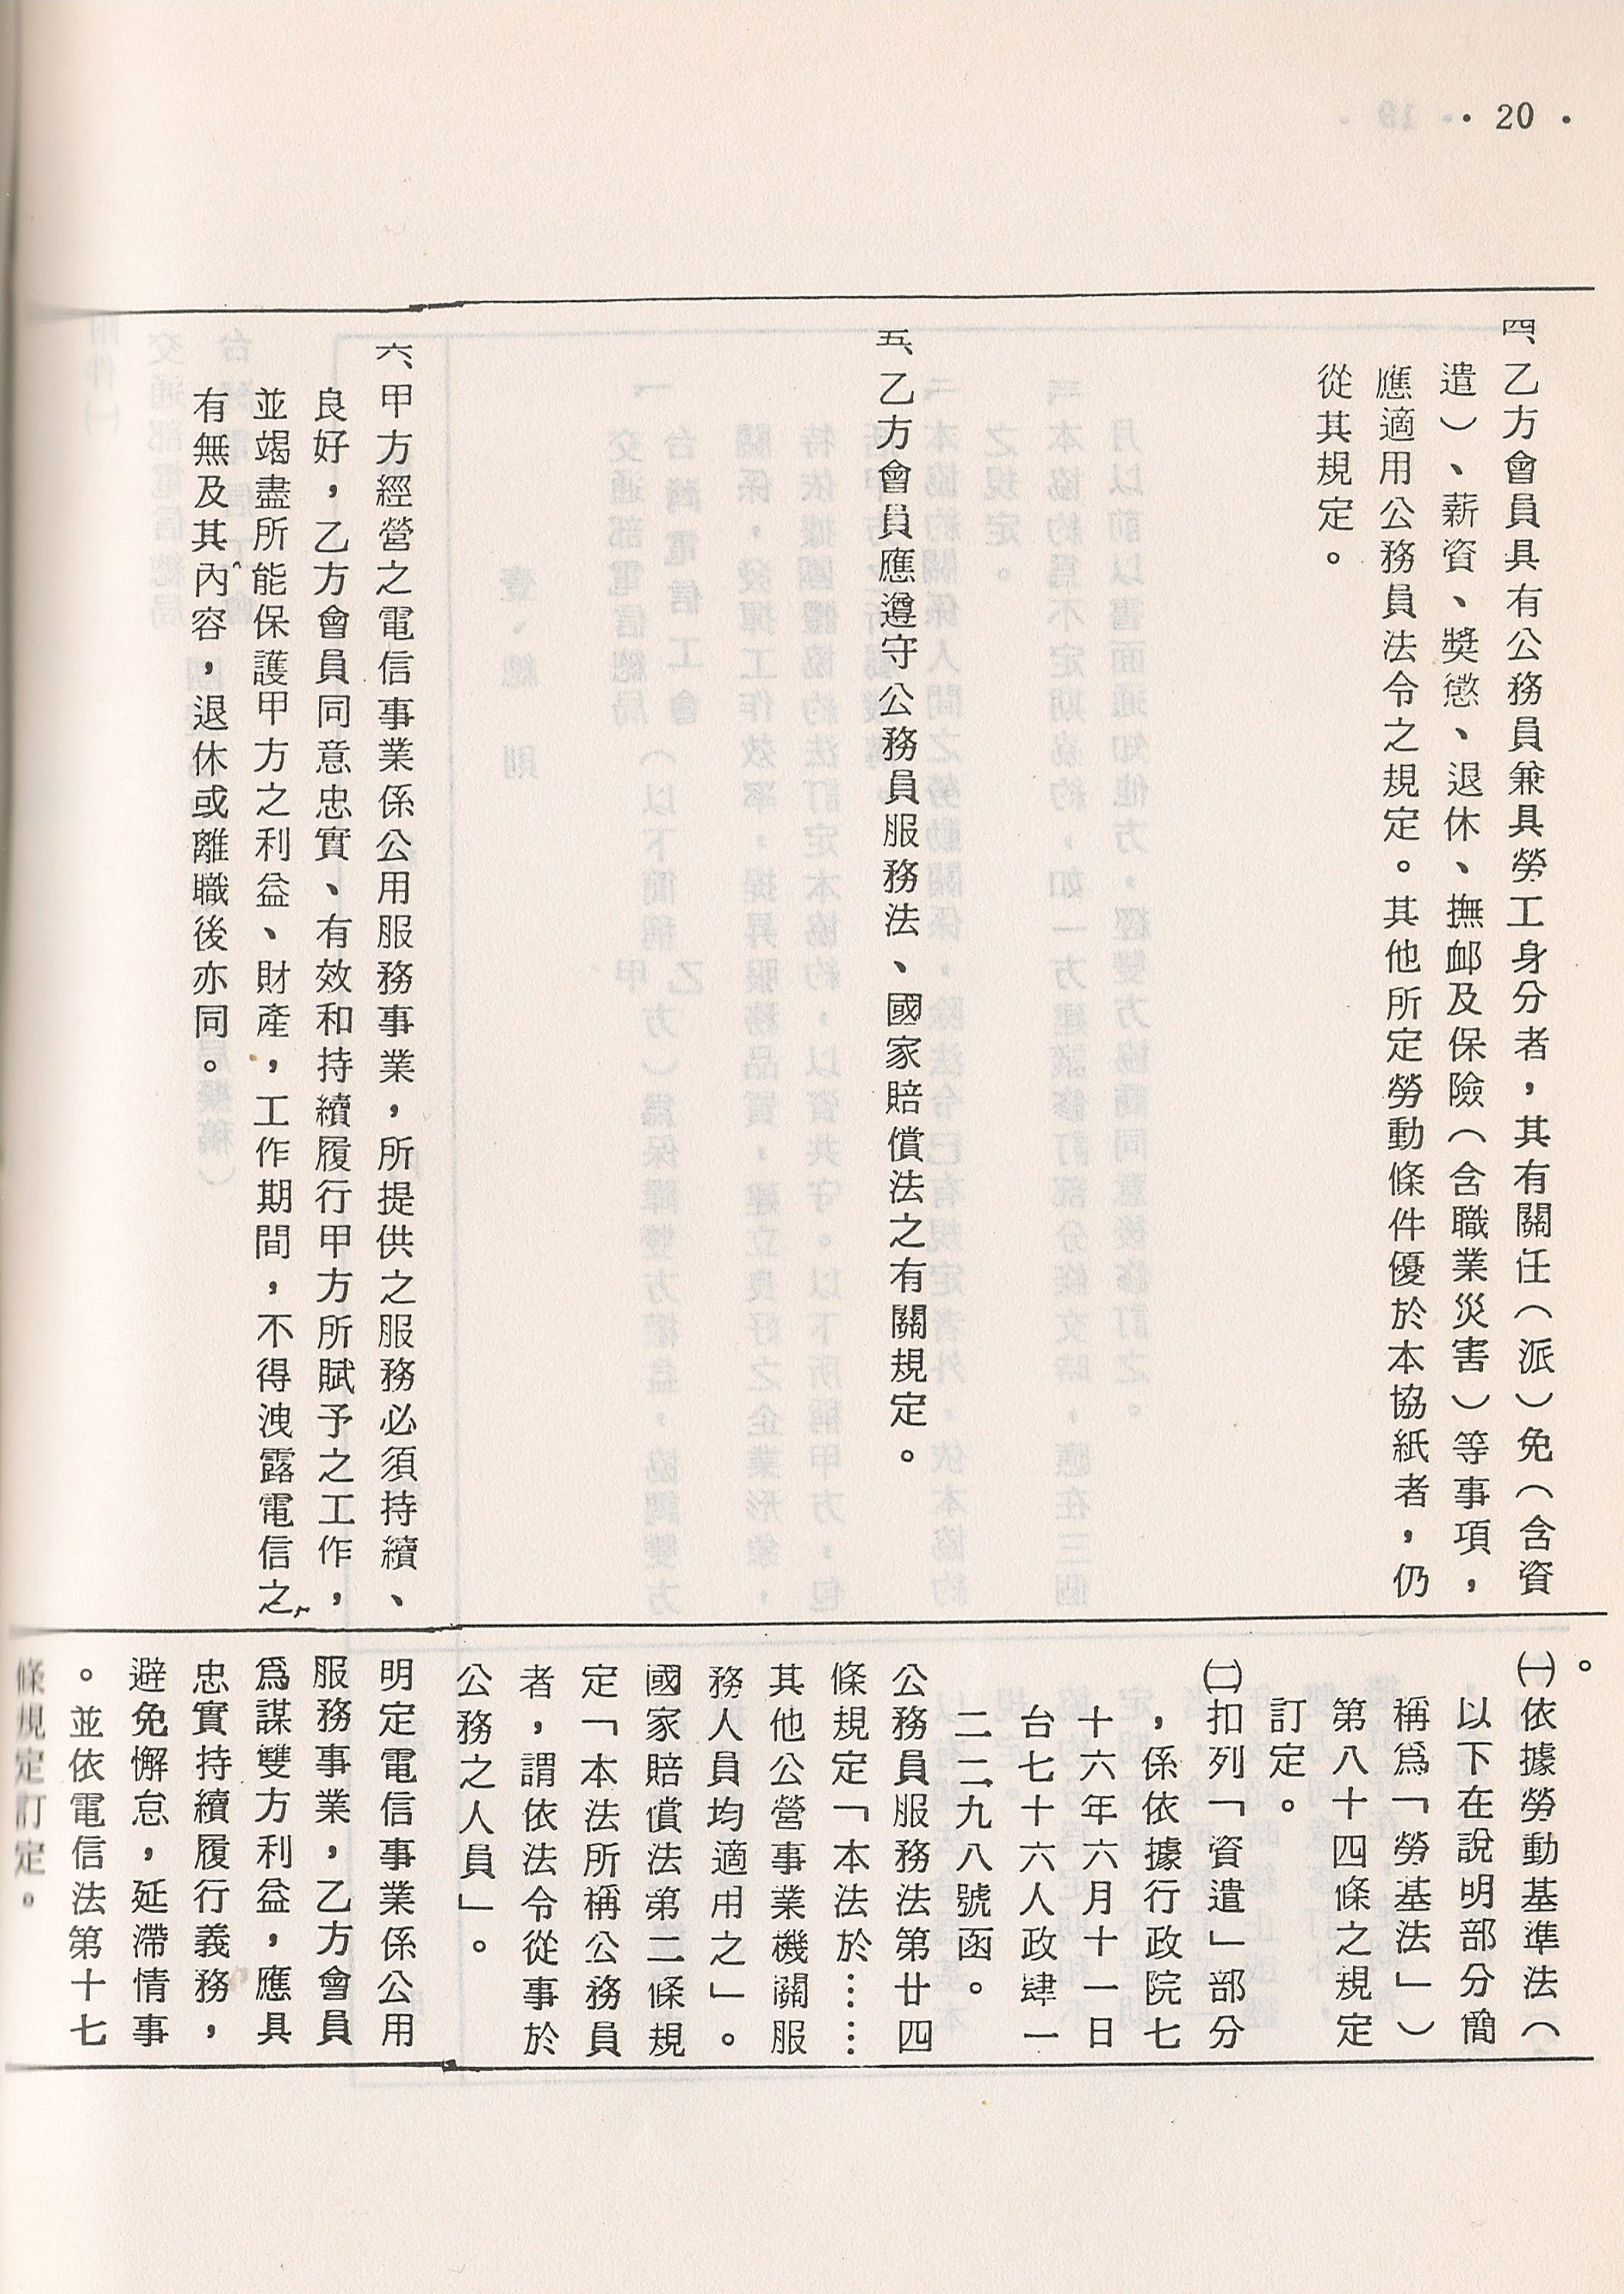 · 20 ·
四、乙方會員具有公務員兼具勞工身分者，其有關任（派）免（含資
遣）、薪資、獎懲、退休、撫卹及保險（含職業災害）等事項，
應適用公務員法令之規定。其他所定勞動條件優於本協紙者，仍
從其規定。
五、乙方會員應遵守公務員服務法、國家賠償法之有關規定。
六、甲方經營之電信事業係公用服務事業，所提供之服務必須持續、
良好，乙方會員同意忠實、有效和持續履行甲方所賦予之工作，
並竭盡所能保護甲方之利益、財產，工作期間，不得洩露電信之
有無及其內容，退休或離職後亦同。
。
㈠依據勞動基準法（
以下在說明部分簡
稱爲「勞基法」）
第八十四條之規定
訂定。
㈡扣列「資遣」部分
，係依據行政院七
十六年六月十一日
台七十六人政肆一
二二九八號函。
公務員服務法第廿四
條規定「本法於……
其他公營事業機關服
務人員均適用之」。
國家賠償法第二條規
定「本法所稱公務員
者，謂依法令從事於
公務之人員」。
明定電信事業係公用
服務事業，乙方會員
爲謀雙方利益，應具
忠實持續履行義務，
避免懈怠，延滯情事
。並依電信法第十七
條規定訂定。